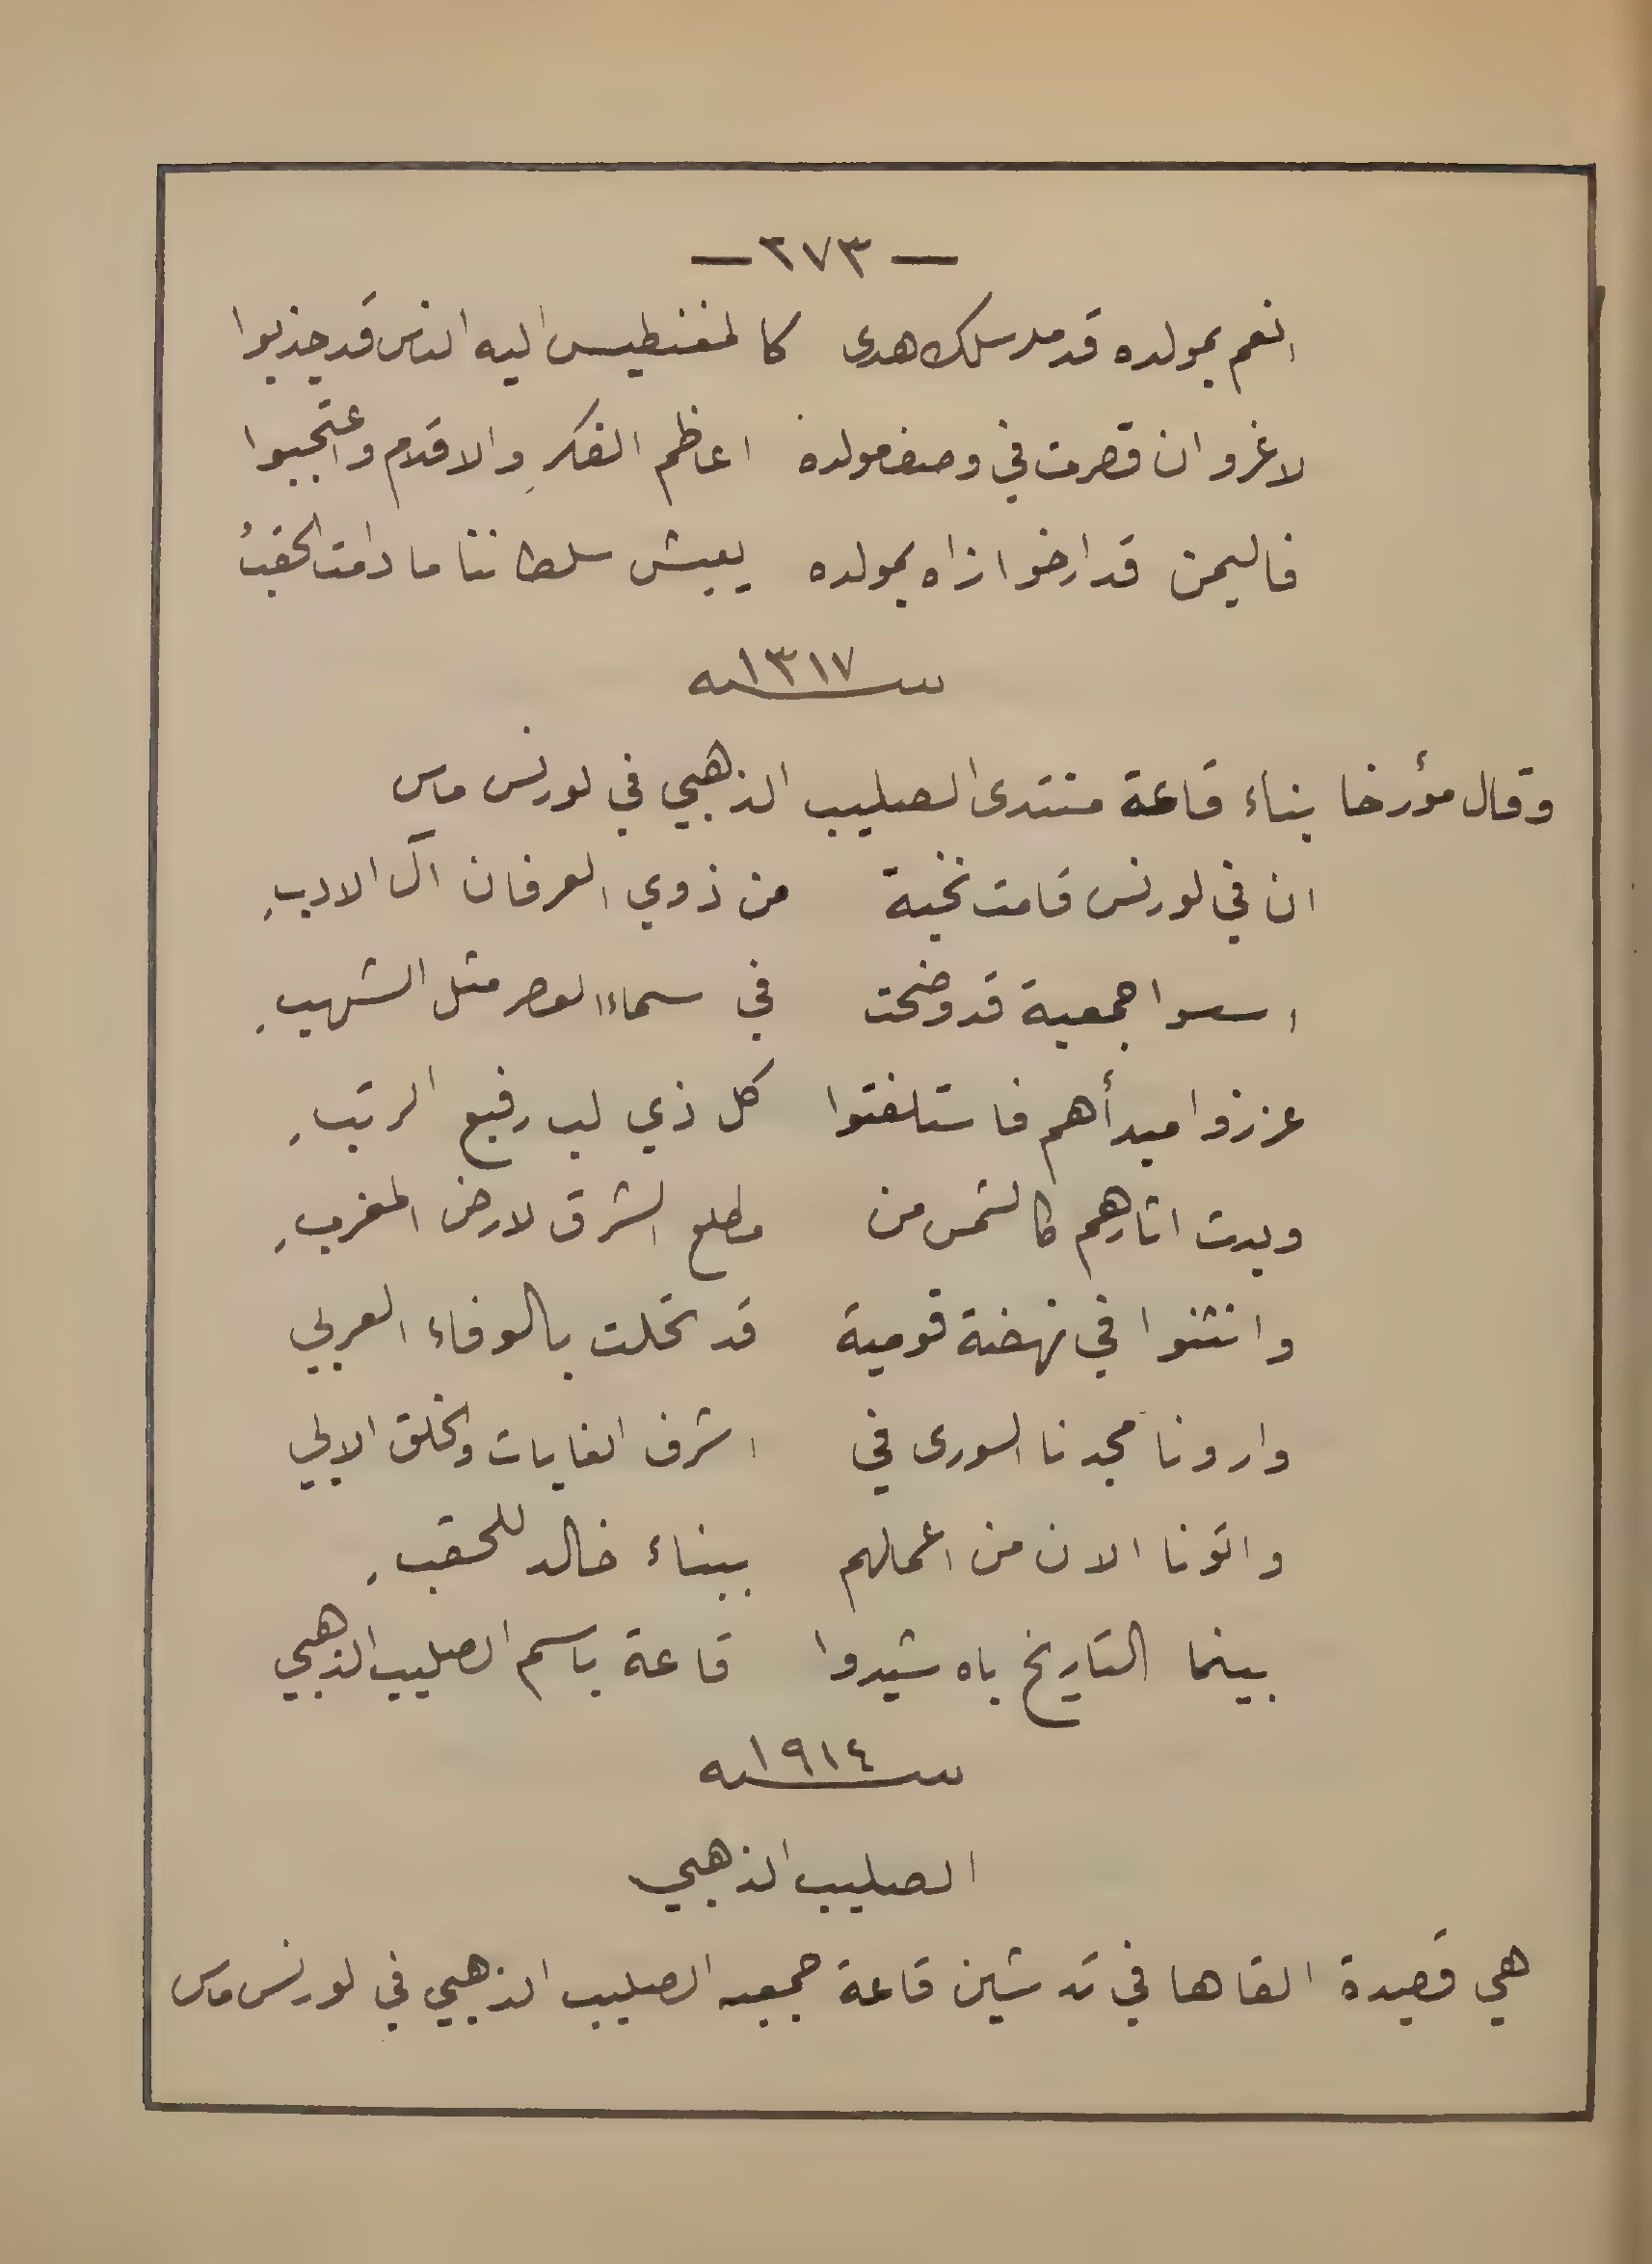 — ٢٧٣ —
انعم بمولده قد مد سلك هدى كالمغنطيس اليه الناس قد جذبوا
لاغرو ان قصرت في وصف مولده اعاظم الفكرِ والاقلام واعتجبوا
فاليمن قد ارخوا زاه بمولده يعيش سلطاننا ما دامت الحقبُ
سنة ١٣١٧
وقال مؤرخا بناء قاعة منتدى الصليب الذهبي في لورنس ماس
ان في لورنس قامت نخبة من ذوي العرفان آل الادبِ
اسسوا جمعية قد وضحت في سماء العصر مثل الشهبِ
عززوا مبدأهم فاستلفتوا كل ذي لب رفيع الرتبِ
وبدت اثارهم كالشمس من مطلع الشرق لارض المغربِ
وانثنوا في نهضة قومية قد تحلت بالوفاء العربي
وارونا مجدنا السورى في اشرف الغايات والخلق الابي
واتونا الان من اعمالهم ببناء خالد للحقبِ
بينما التاريخ باه شيدوا قاعة باسم الصليب الذهبي
سنة ١٩١٤
الصليب الذهبي
هي قصيدة القاها في تدشين قاعة جمعيه الصليب الذهبي في لورنس ماس